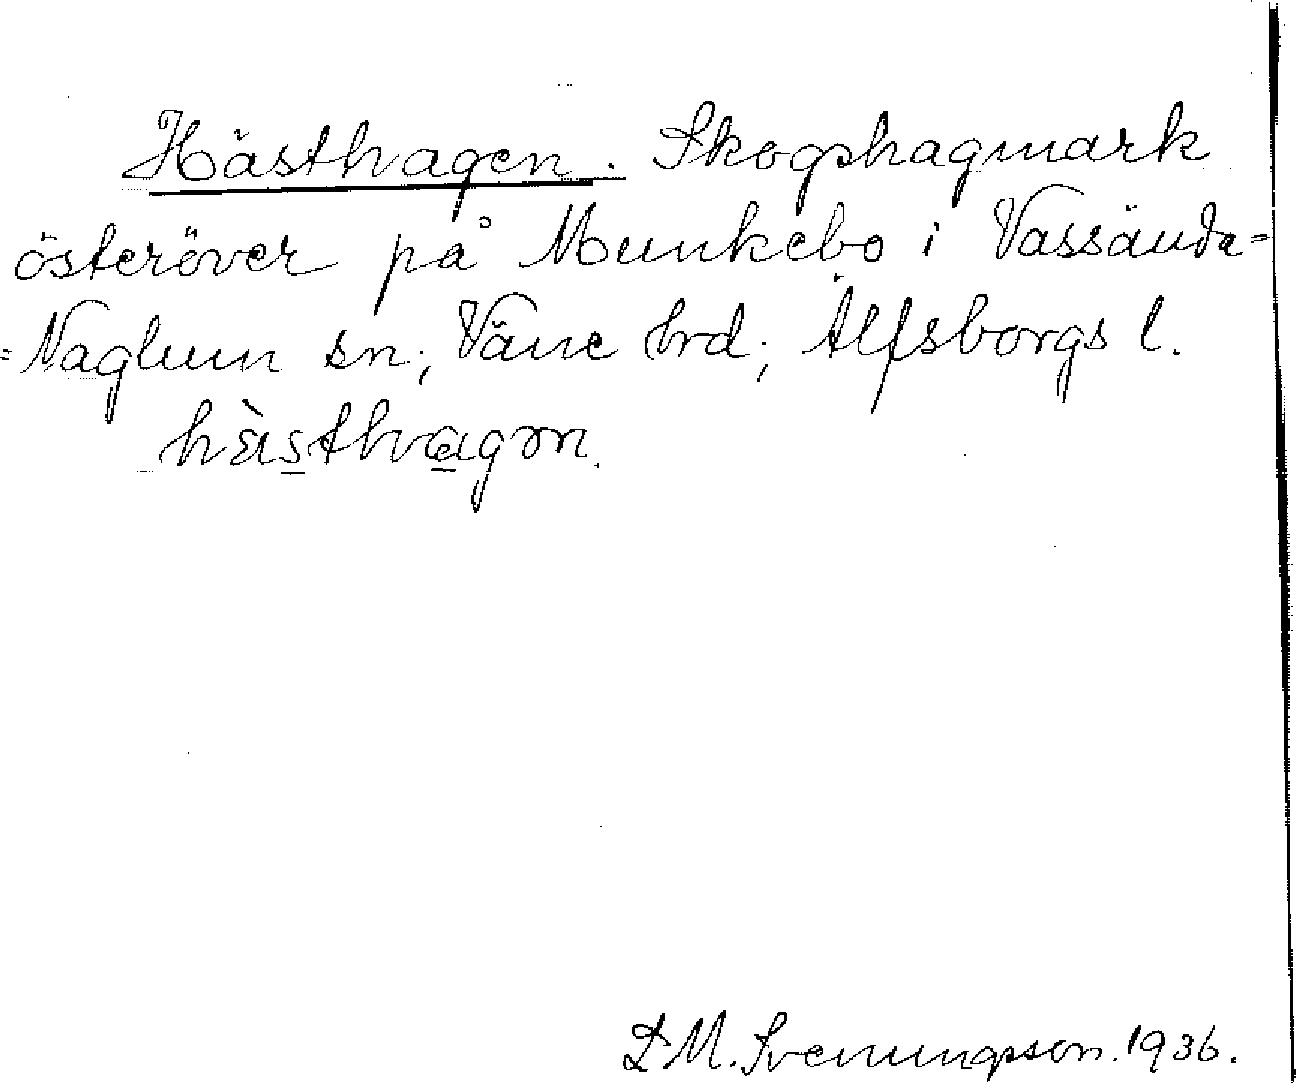 Hästhagen. Skogshagmark
österöver på Munkebo i Vassända=
=Naglum sn; Väne hrd; Älfsborgs l.
hàsthagən.
D M. Svenungsson. 1936.